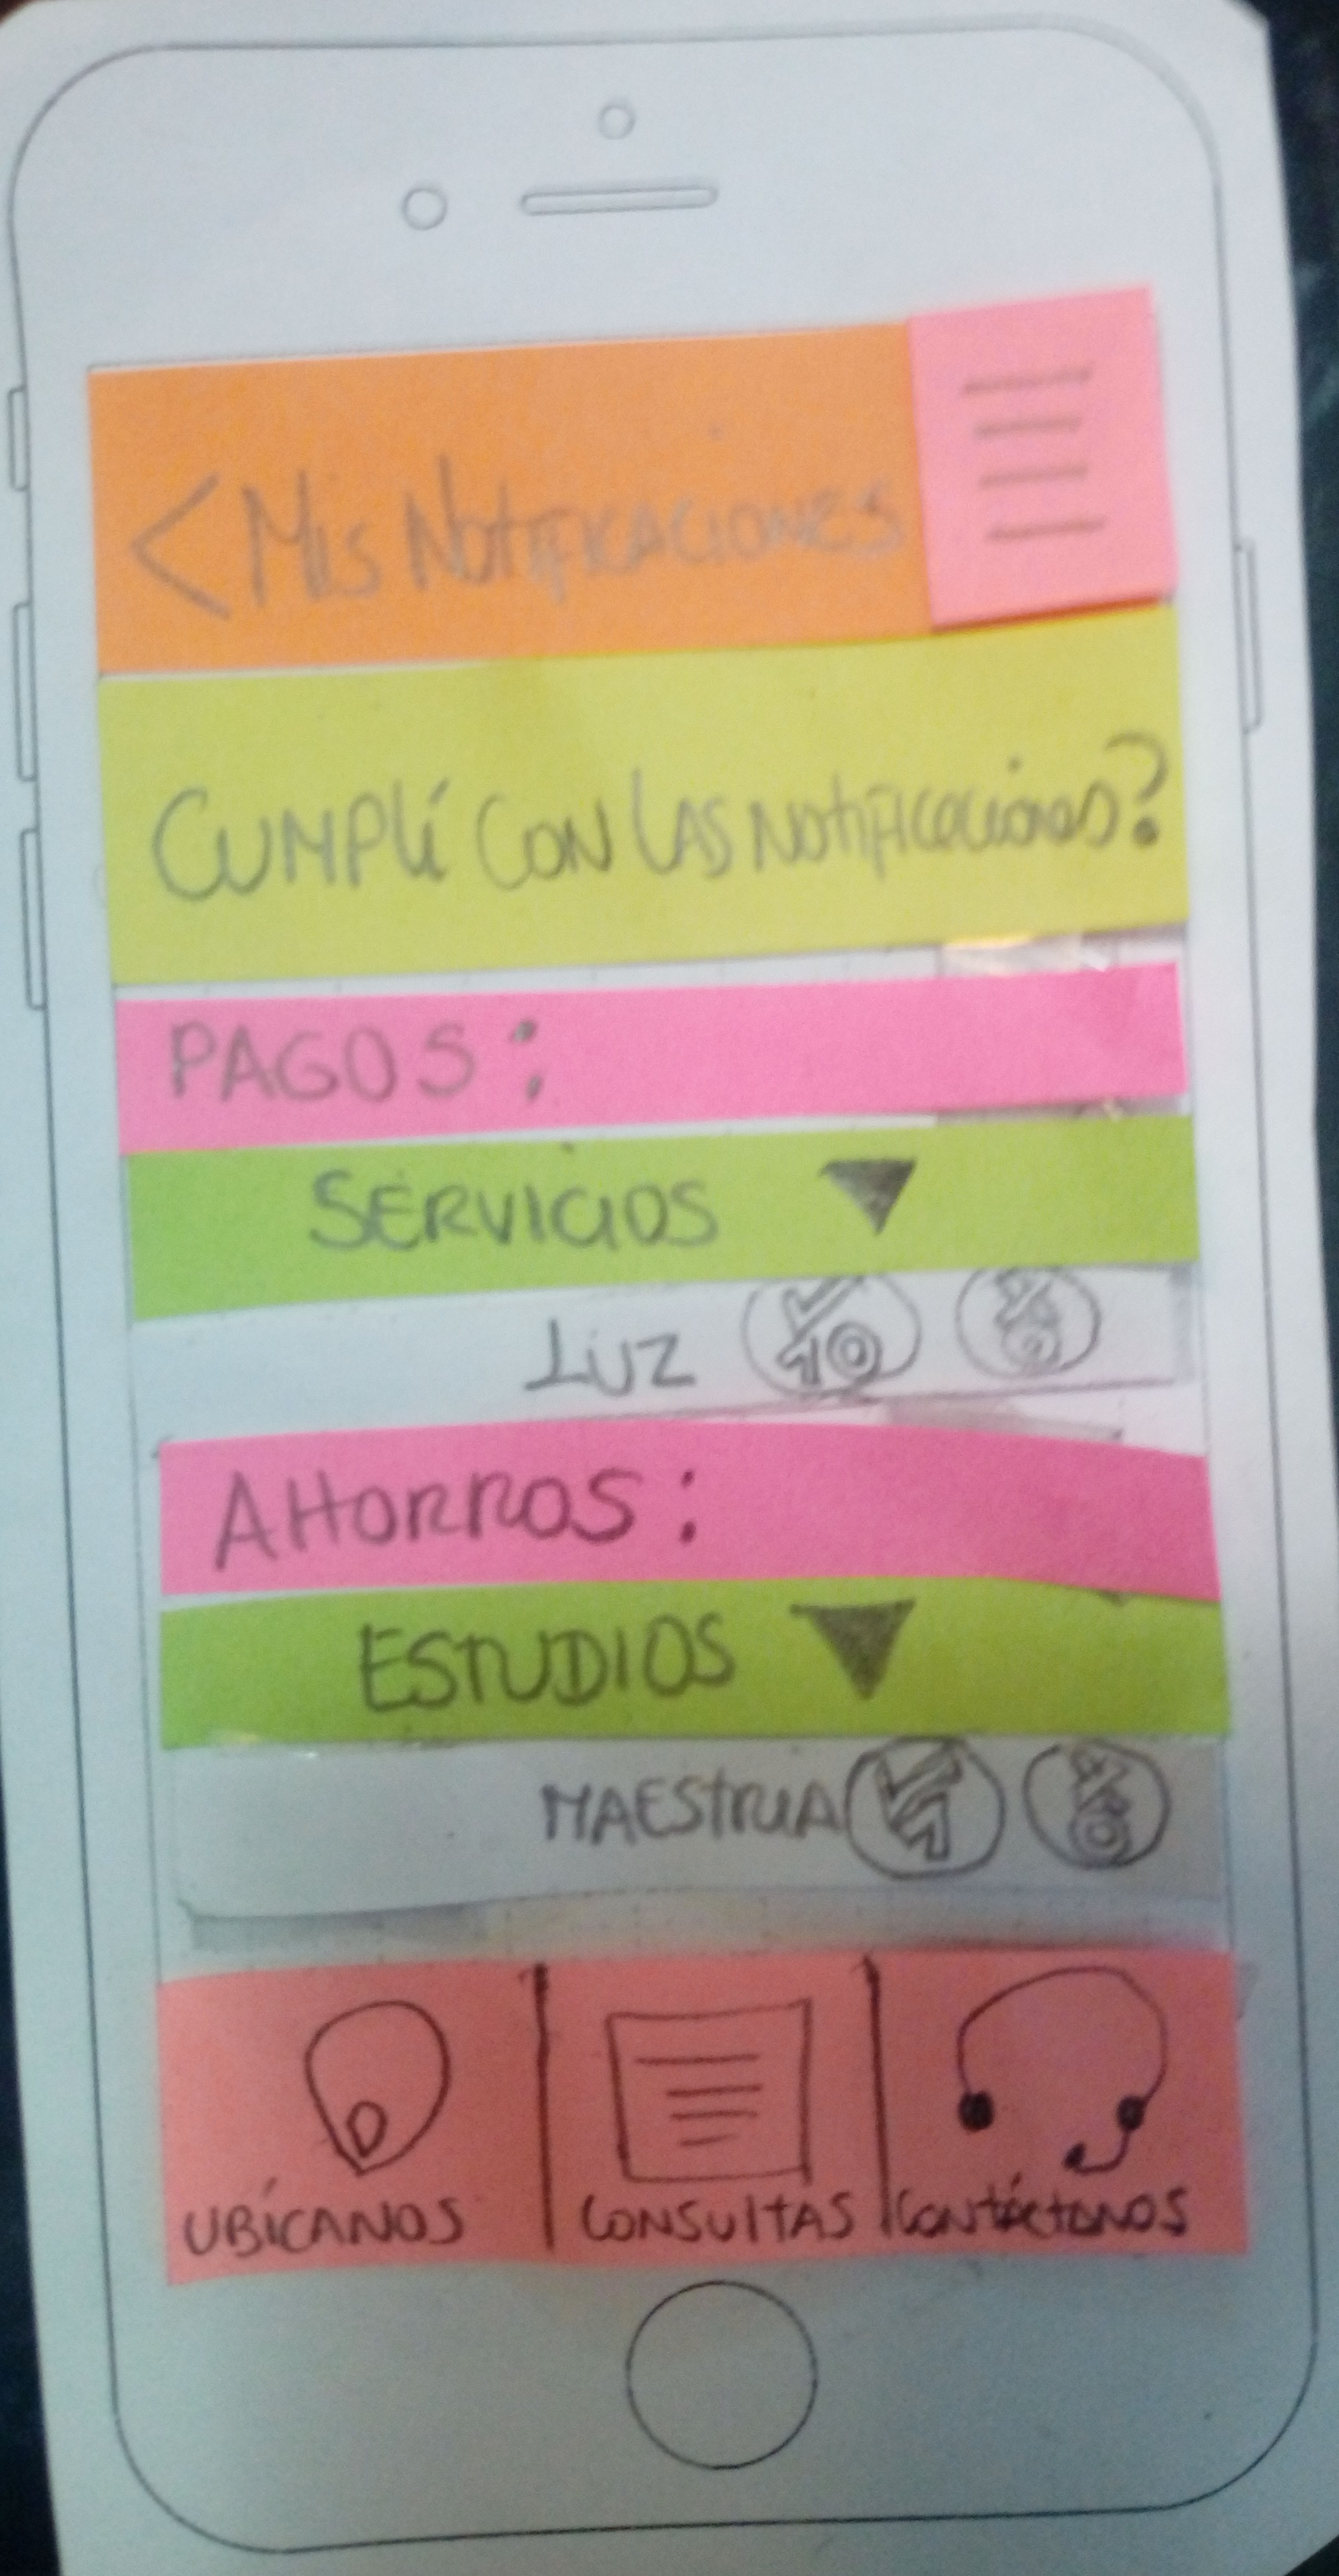 < Mis Notificaciones
Cumplí con las notificaciones?
PAGOS:
SERVICIOS
LUZ
AHORROS:
ESTUDIOS
MAESTRIA
UBÍCANOS
CONSULTAS
Contáctanos